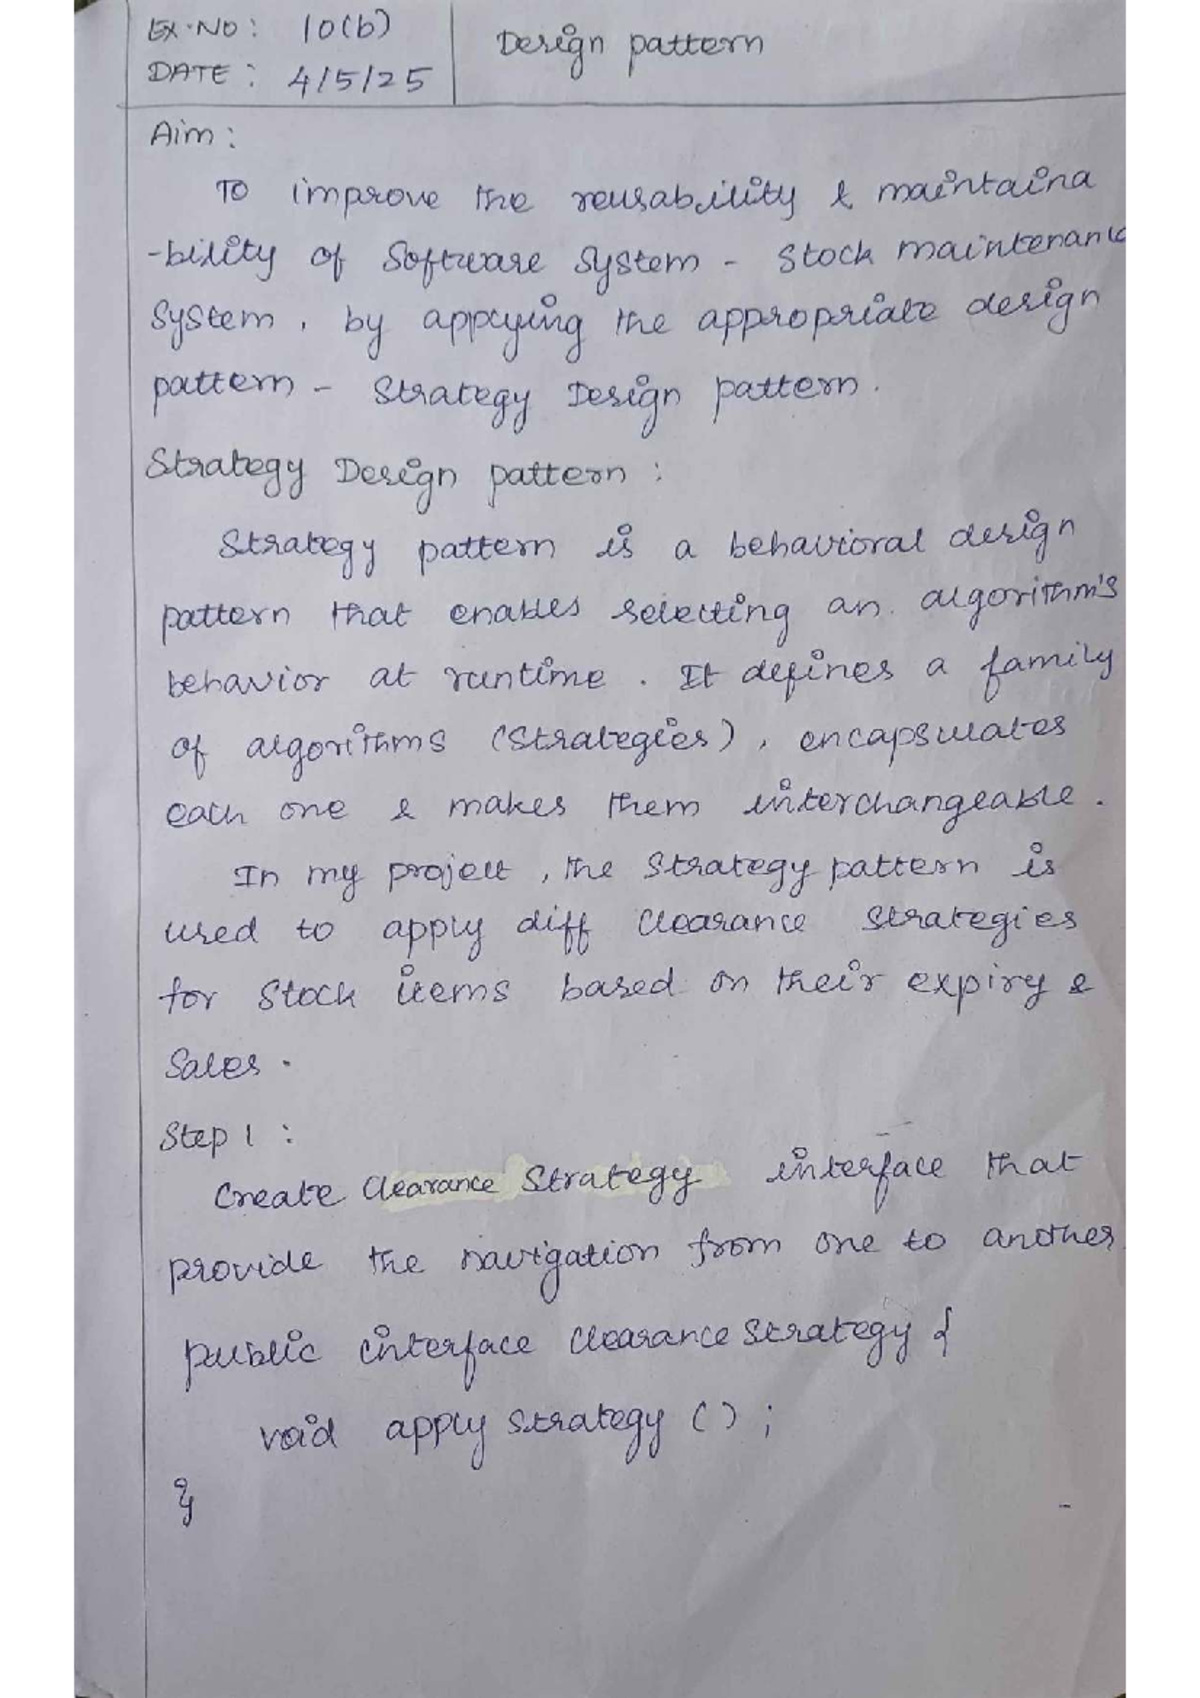 Ex.No: 10(b)
DATE: 4/5/25
Design pattern
Aim:
To improve the reusability & maintaina
-bility of Software System - Stock maintenanc
System, by applying the appropriate design
pattern - Strategy Design pattern.
Strategy Design pattern:
Strategy pattern is a behavioral design
pattern that enables selecting an algorithm's
behavior at runtime. It defines a family
of algorithms (Strategies), encapsulates
each one & makes them interchangeable.
In my project, the Strategy pattern is
used to apply diff Clearance Strategies
for Stock items based on their expiry &
Sales.
Step 1:
Create Clearance Strategy interface that
provide the navigation from one to another
public interface Clearance Strategy {
void apply Strategy ();
}